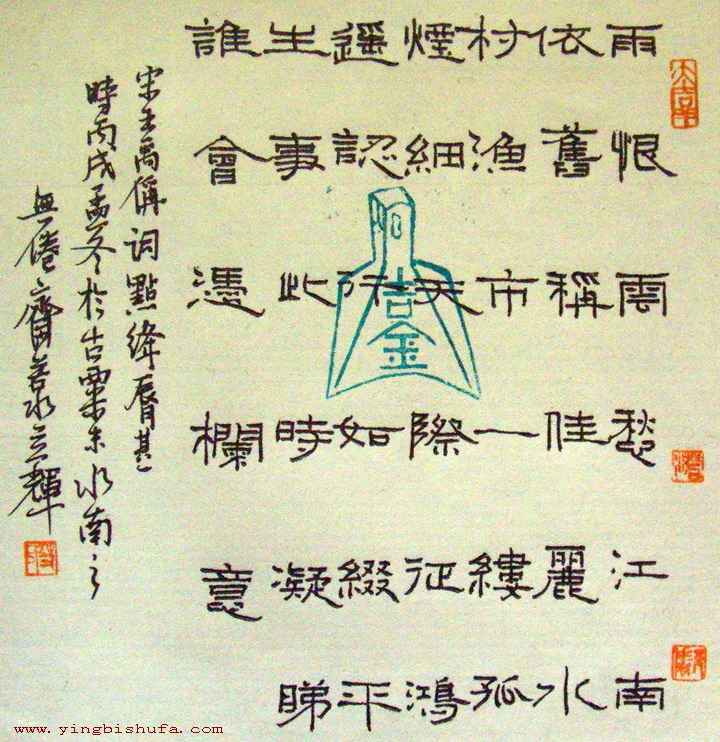 雨恨雲愁江南
依舊稱佳麗水
村漁市一縷孤
煙細天際征鴻
遥認行如綴平
生事此時凝睇
誰會憑欄意
宋王禹偁词點絳脣
時丙戌孟冬於古粟末水南之
無倦齋立輝
吉金
www.yingbishufa.com